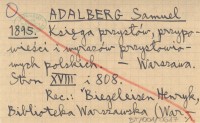 ADALBERG Samuel
1895. Księga przysłów, przypo-
wieści i wyrażeń przysłowio-
wych polskich. — Warszawa.
Stron XVIII i 808.
Rec.: Biegeleisen Henryk,
Biblioteka Warszawska (War